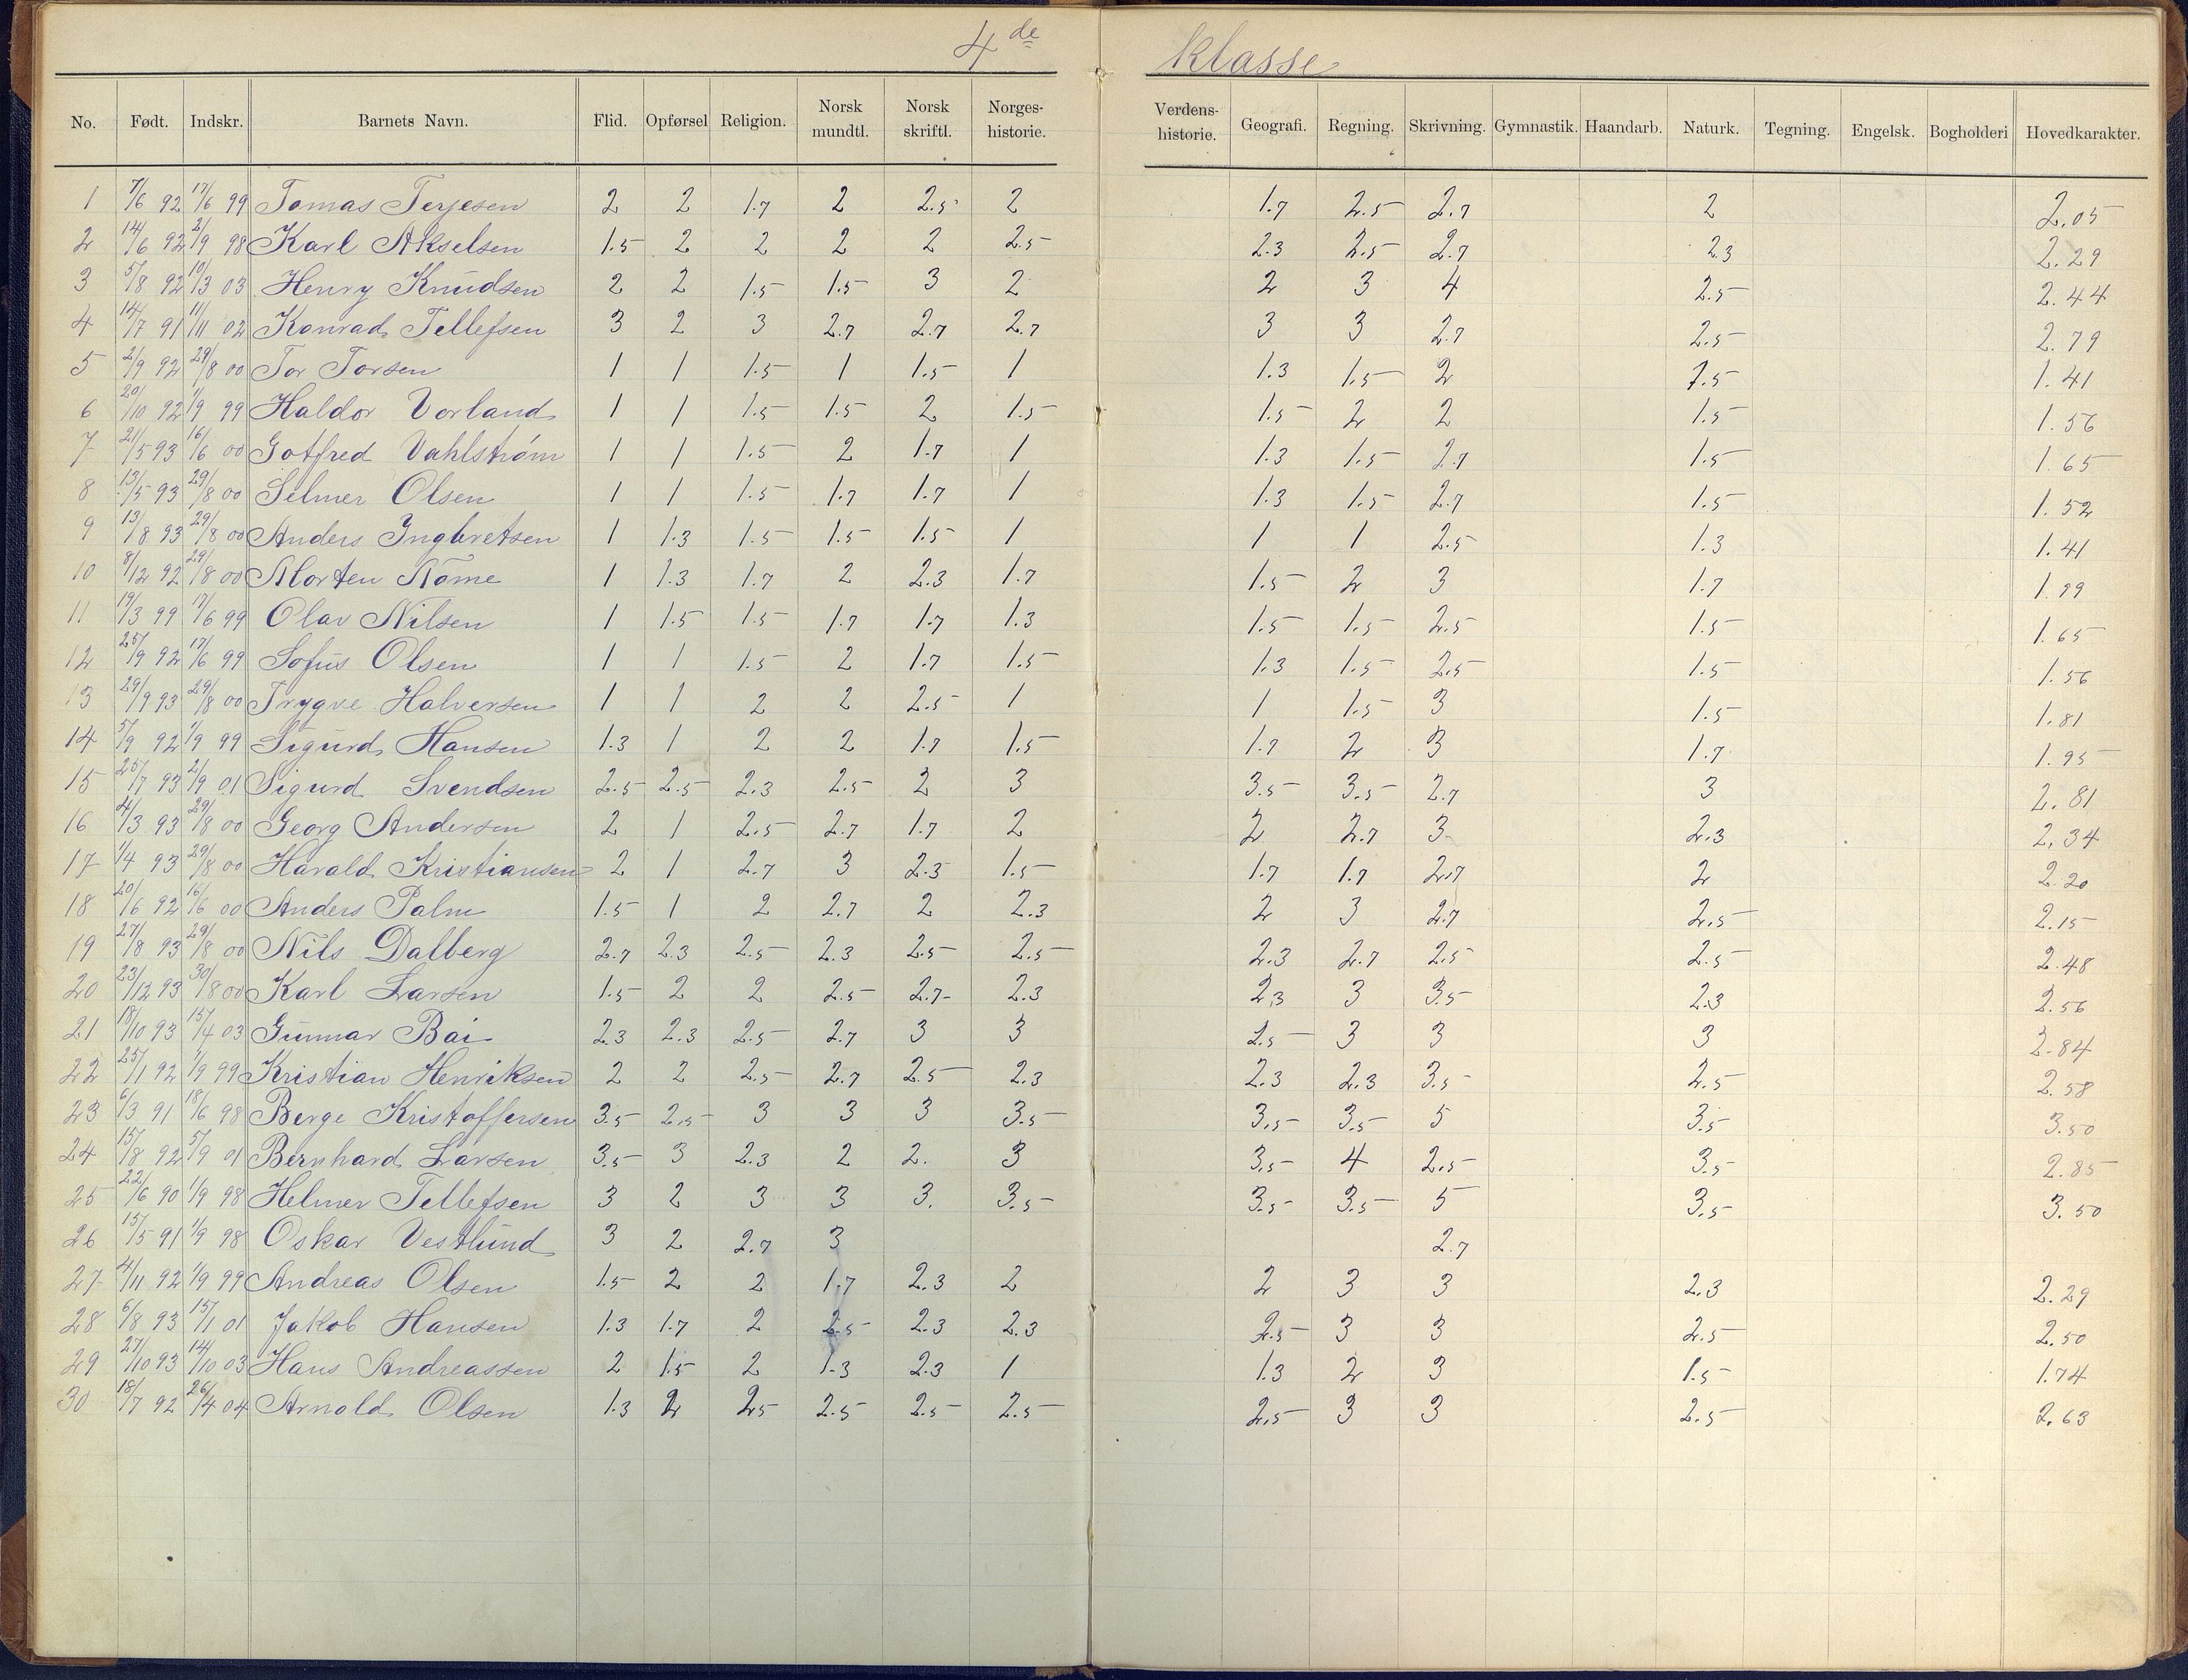 4de klasse
No. Født. Indskr. Barnets Navn. Flid. Opførsel Religion. Norsk mundtl. Norsk skriftl. Norges-historie. Verdens-historie. Geografi. Regning. Skrivning. Gymnastik. Haandarb. Naturk. Tegning. Engelsk. Bogholderi Hovedkarakter.
1 7/6 92 17/6 99 Tomas Terjesen 2 2 1.7 2 2.5 2 1.7 2.5 2.7 2 2.05
2 14/6 92 2/9 98 Karl Akselsen 1.5 2 2 2 2 2.5 2.3 2.5 2.7 2.3 2.29
3 5/8 92 10/3 03 Henry Knudsen 2 2 1.5 1.5 3 2 2 3 4 2.5 2.44
4 14/7 91 11/11 02 Konrad Tellefsen 3 2 3 2.7 2.7 2.7 3 3 2.7 2.5 2.79
5 2/9 92 29/8 00 Tor Torsen 1 1 1.5 1 1.5 1 1.3 1.5 2 1.5 1.41
6 20/10 92 1/9 99 Haldor Vorland 1 1 1.5 1.5 2 1.5 1.5 2 2 1.5 1.56
7 21/5 93 16/6 00 Gotfred Vahlstrøm 1 1 1.5 2 1.7 1 1.3 1.5 2.7 1.5 1.65
8 13/5 93 29/8 00 Selmer Olsen 1 1 1.5 1.7 1.7 1 1.3 1.5 2.7 1.5 1.52
9 13/8 93 29/8 00 Anders Ingbretsen 1 1.3 1.5 1.5 1.5 1 1 1 2.5 1.3 1.41
10 8/12 92 29/8 00 Morten Rome 1 1.3 1.7 2 2.3 1.7 1.5 2 3 1.7 1.99
11 19/3 99 17/6 99 Olav Nilsen 1 1.5 1.5 1.7 1.7 1.3 1.5 1.5 2.5 1.5 1.65
12 25/9 92 17/6 99 Sofus Olsen 1 1 1.5 2 1.7 1.5 1.3 1.5 2.5 1.5 1.56
13 29/9 93 29/8 00 Trygve Halversen 1 1 2 2 2.5 1 1 1.5 3 1.5 1.81
14 5/9 92 1/9 99 Sigurd Hansen 1.3 1 2 2 1.7 1.5 1.7 2 3 1.7 1.95
15 25/7 93 2/9 01 Sigurd Svendsen 2.5 2.5 2.3 2.5 2 3 3.5 3.5 2.7 3 2.81
16 4/3 93 29/8 00 Georg Andersen 2 1 2.5 2.7 1.7 2 2 2.7 3 2.3 2.34
17 1/4 93 29/8 00 Harald Kristiansen 2 1 2.7 3 2.3 1.5 1.7 1.7 2.7 2 2.20
18 20/6 92 16/6 00 Anders Palm 1.5 1 2 2.7 2 2.3 2 3 2.7 2.5 2.15
19 27/8 93 29/8 00 Nils Dalberg 2.7 2.3 2.5 2.3 2.5 2.5 2.3 2.7 2.5 2.5 2.48
20 23/12 93 30/8 00 Karl Larsen 1.5 2 2 2.5 2.7 2.3 2.3 3 3.5 2.3 2.56
21 18/10 93 15/4 03 Gunnar Bai 2.3 2.3 2.5 2.7 3 3 2.5 3 3 3 2.84
22 25/1 92 1/9 99 Kristian Henriksen 2 2 2.5 2.7 2.5 2.3 2.3 2.3 3.5 2.5 2.58
23 6/3 91 18/6 98 Berge Kristoffersen 3.5 2.5 3 3 3 3.5 3.5 3.5 5 3.5 3.50
24 15/8 92 5/9 01 Bernhard Larsen 3.5 3 2.3 2 2. 3 3.5 4 2.5 3.5 2.85
25 22/6 90 1/9 98 Helmer Tellefsen 3 2 3 3 3. 3.5 3.5 3.5 5 3.5 3.50
26 15/5 91 1/9 98 Oskar Vestlund 3 2 2.7 3 2.7
27 4/11 92 1/9 99 Andreas Olsen 1.5 2 2 1.7 2.3 2 2 3 3 2.3 2.29
28 6/8 93 15/1 01 Jakob Hansen 1.3 1.7 2 2.5 2.3 2.3 2.5 3 3 2.5 2.50
29 27/10 93 14/10 03 Hans Andreassen 2 1.5 2 1.3 2.3 1 1.3 2 3 1.5 1.74
30 18/7 92 26/4 04 Arnold Olsen 1.3 2 2.5 2.5 2.5 2.5 2.5 3 3 2.5 2.63